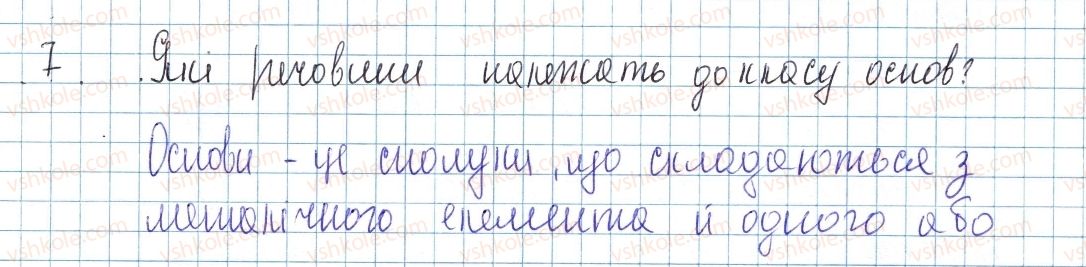 7. Які речовини належать до класу основ?
Основи - це сполуки, що складаються з
металічного елемента й одного або